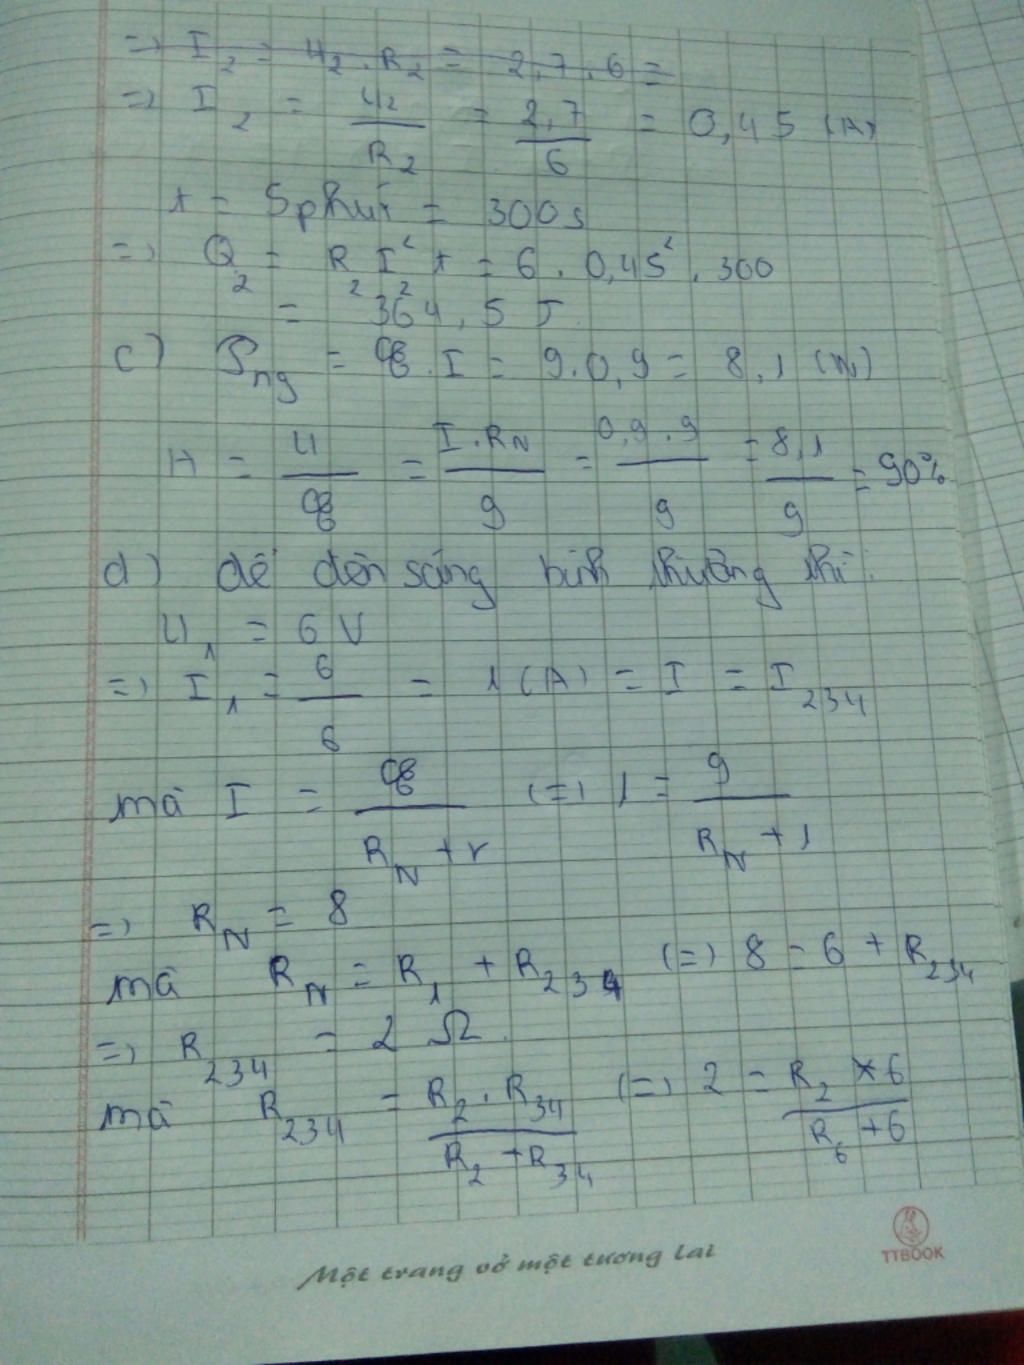 => I₂ = U₂.R₂ = 2,7.6 =
=> I₂ = U₂/R₂ = 2,7/6 = 0,45 (A)
t = 5 phút = 300s
=> Q₂ = R₂ I₂² t = 6 . 0,45² . 300
= 364,5 J
c) Png = ℰ.I = 9.0,9 = 8,1 (W)
H = U/ℰ = I.R_N/9 = 0,9.9/9 = 8,1/9 = 90%
d) để đèn sáng bình thường thì:
U₁ = 6V
=> I₁ = 6/6 = 1 (A) = I = I₂₃₄
mà I = ℰ/(R_N + r) (=) 1 = 9/(R_N + 1)
=> R_N = 8
mà R_N = R₁ + R₂₃₄ (=) 8 = 6 + R₂₃₄
=> R₂₃₄ = 2 Ω.
mà R₂₃₄ = R₂.R₃₄/(R₂ + R₃₄) (=) 2 = R₂ × 6/(R₆ + 6)
Một trang vở một tương lai
TTBOOK